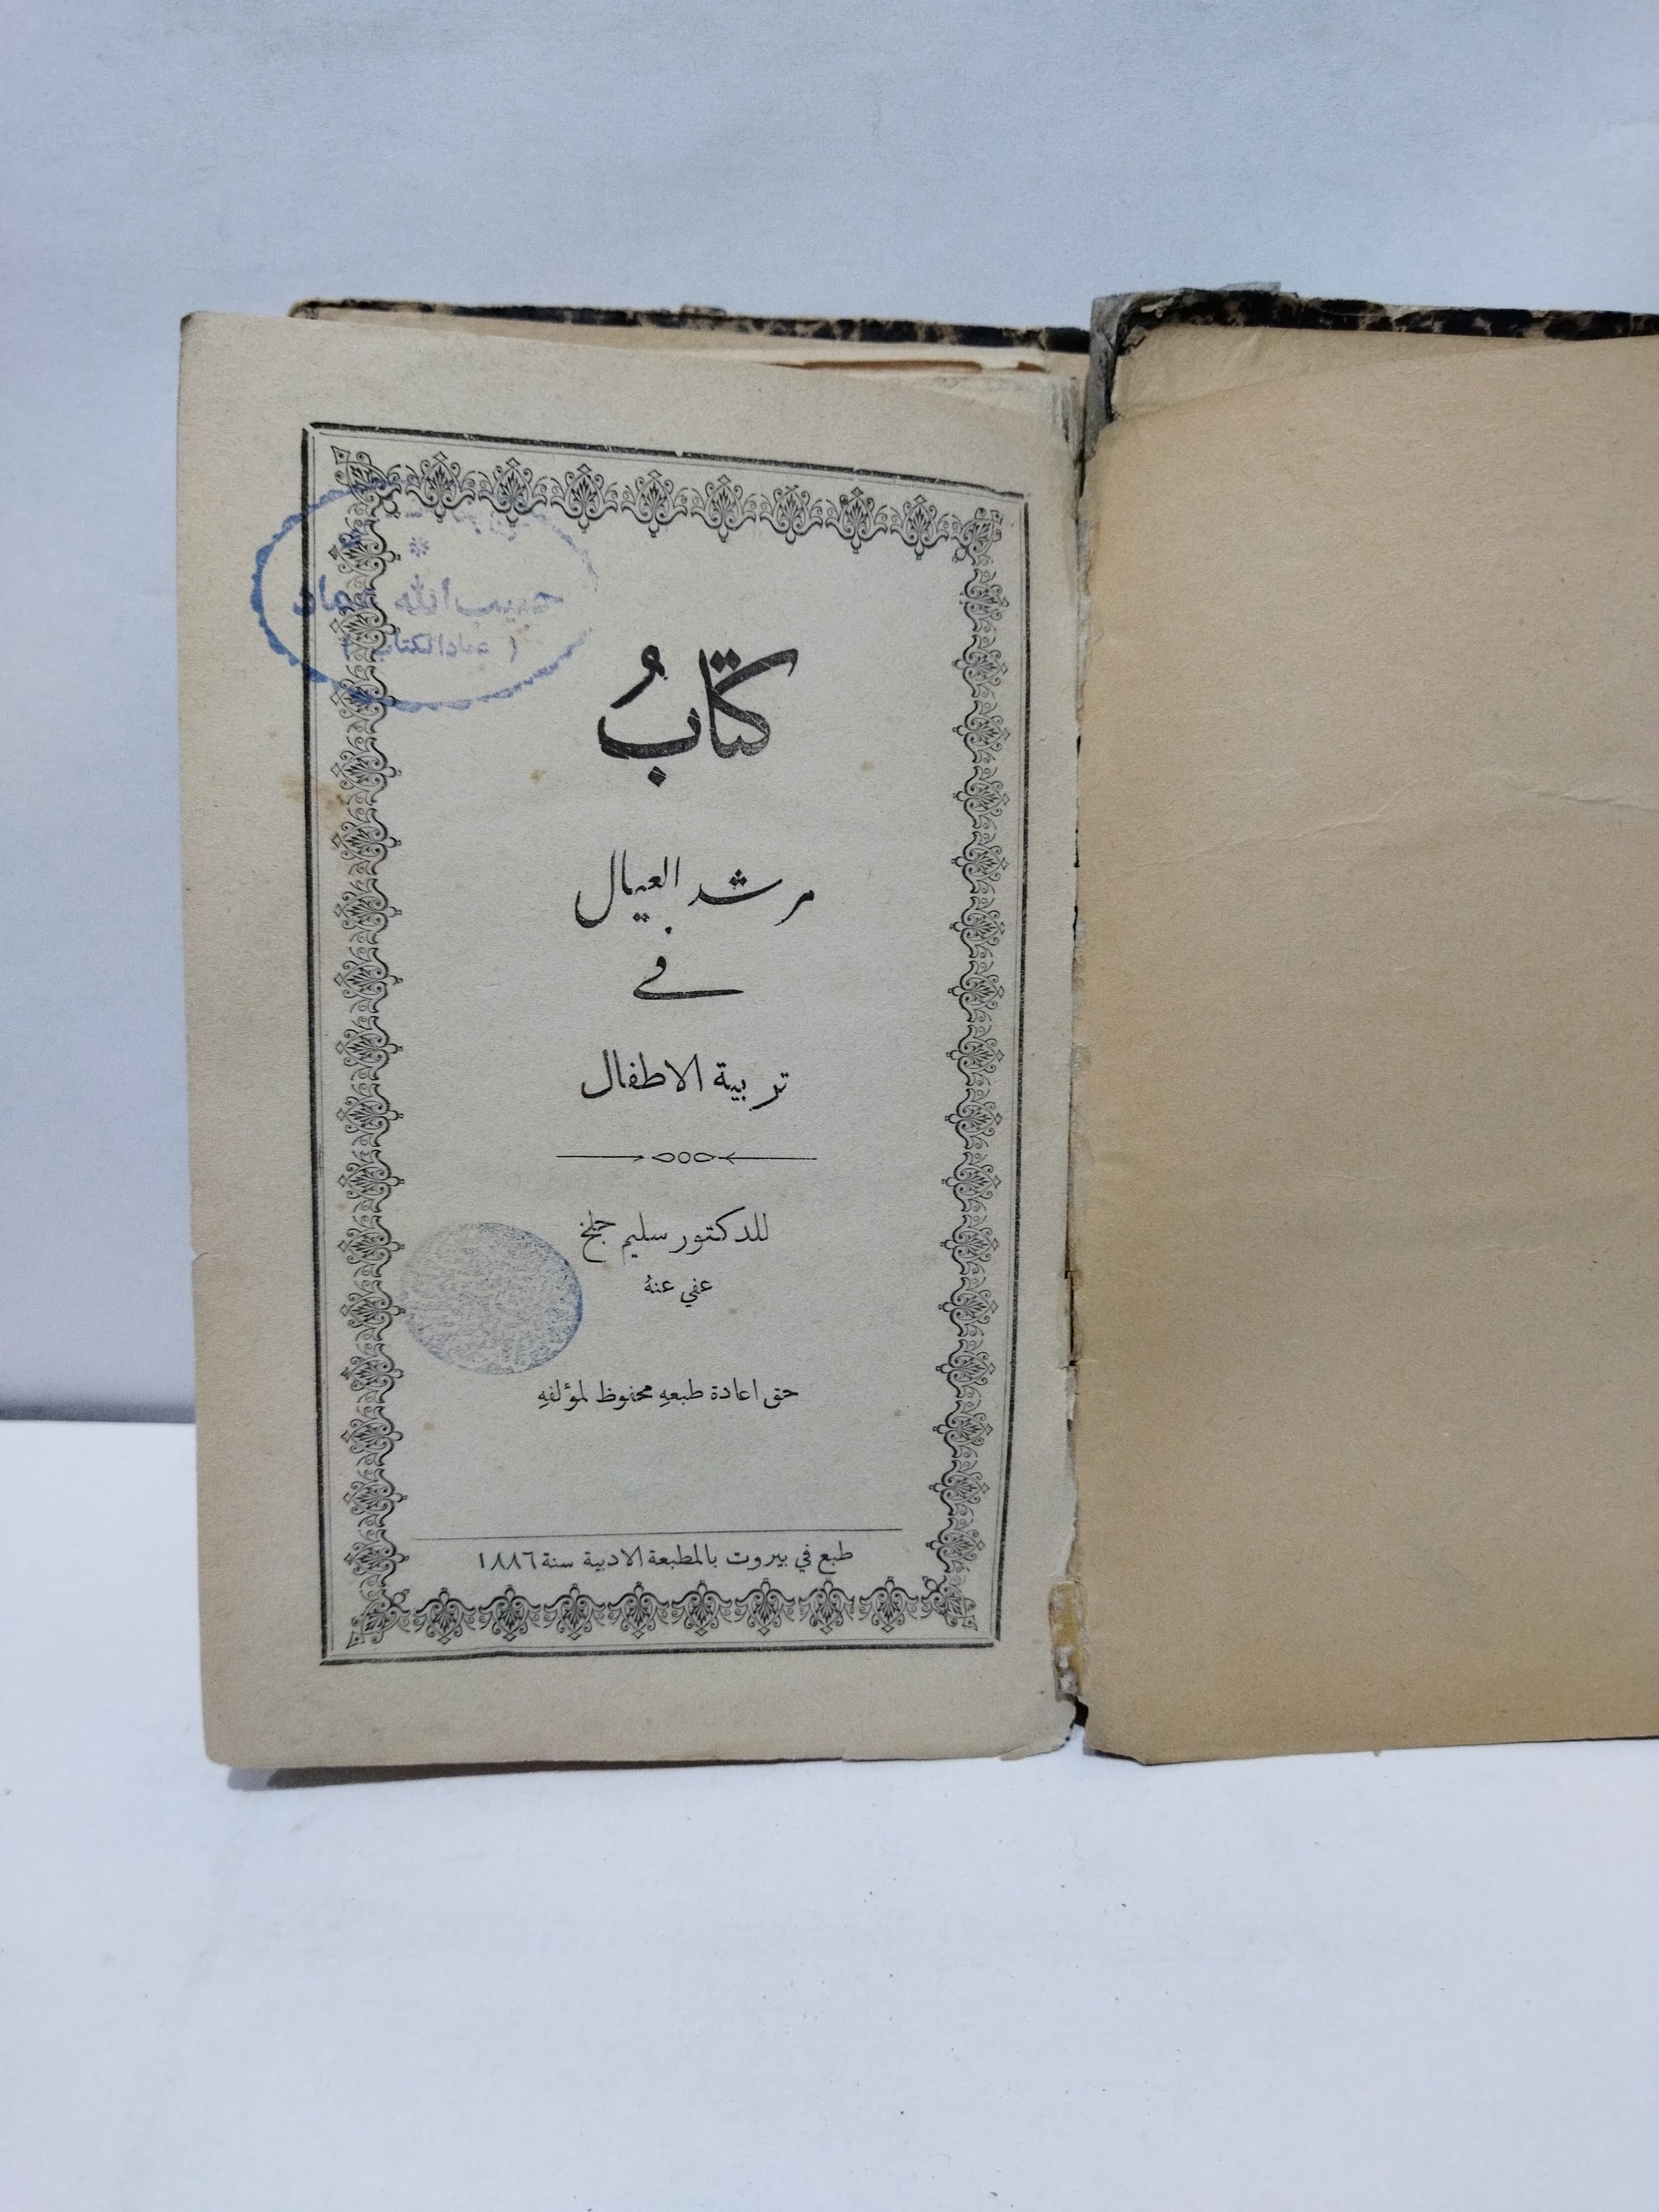 حبيب الله
( عماد الكتاب )
كتابُ
مرشد العيال
في
تربية الاطفال
للدكتور سليم جلخ
عفي عنهُ
حق اعادة طبعهِ محفوظ لمؤلفهِ
طبع في بيروت بالمطبعة الادبية سنة ١٨٨٦